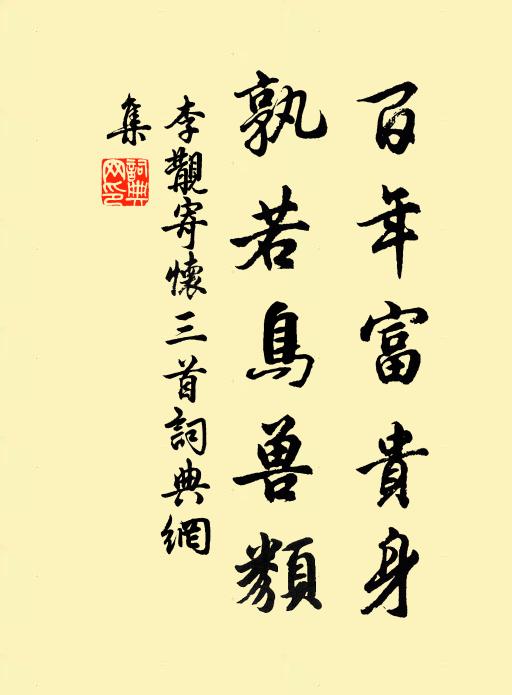 百年富貴身
孰若鳥兽類
李覯寄懷三首詞典網
集
詞典
网印